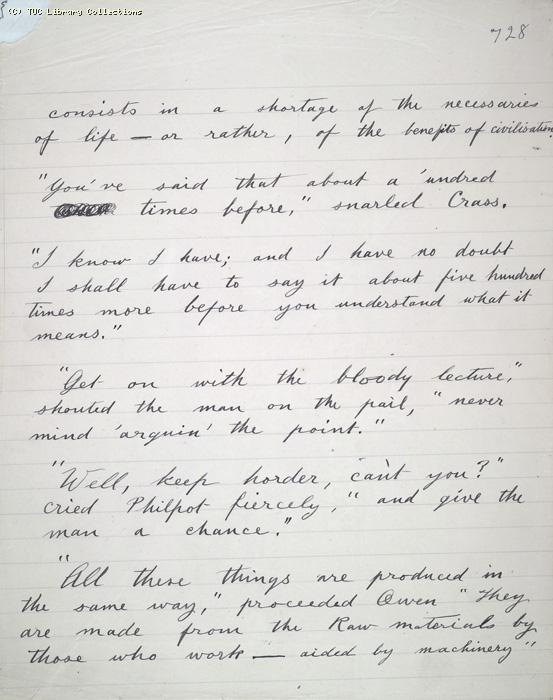 (C) TUC Library Collections
728
consists in a shortage of the necessaries
of life — or rather, of the benefits of civilisation.
"You've said that about a 'undred
times before," snarled Crass.
"I know I have; and I have no doubt
I shall have to say it about five hundred
times more before you understand what it
means."
"Get on with the bloody lecture,"
shouted the man on the pail, "never
mind 'arguin' the point."
"Well, keep horder, can't you?"
cried Philpot fiercely, "and give the
man a chance."
"All these things are produced in
the same way," proceeded Owen "They
are made from the Raw materials by
those who work — aided by machinery"